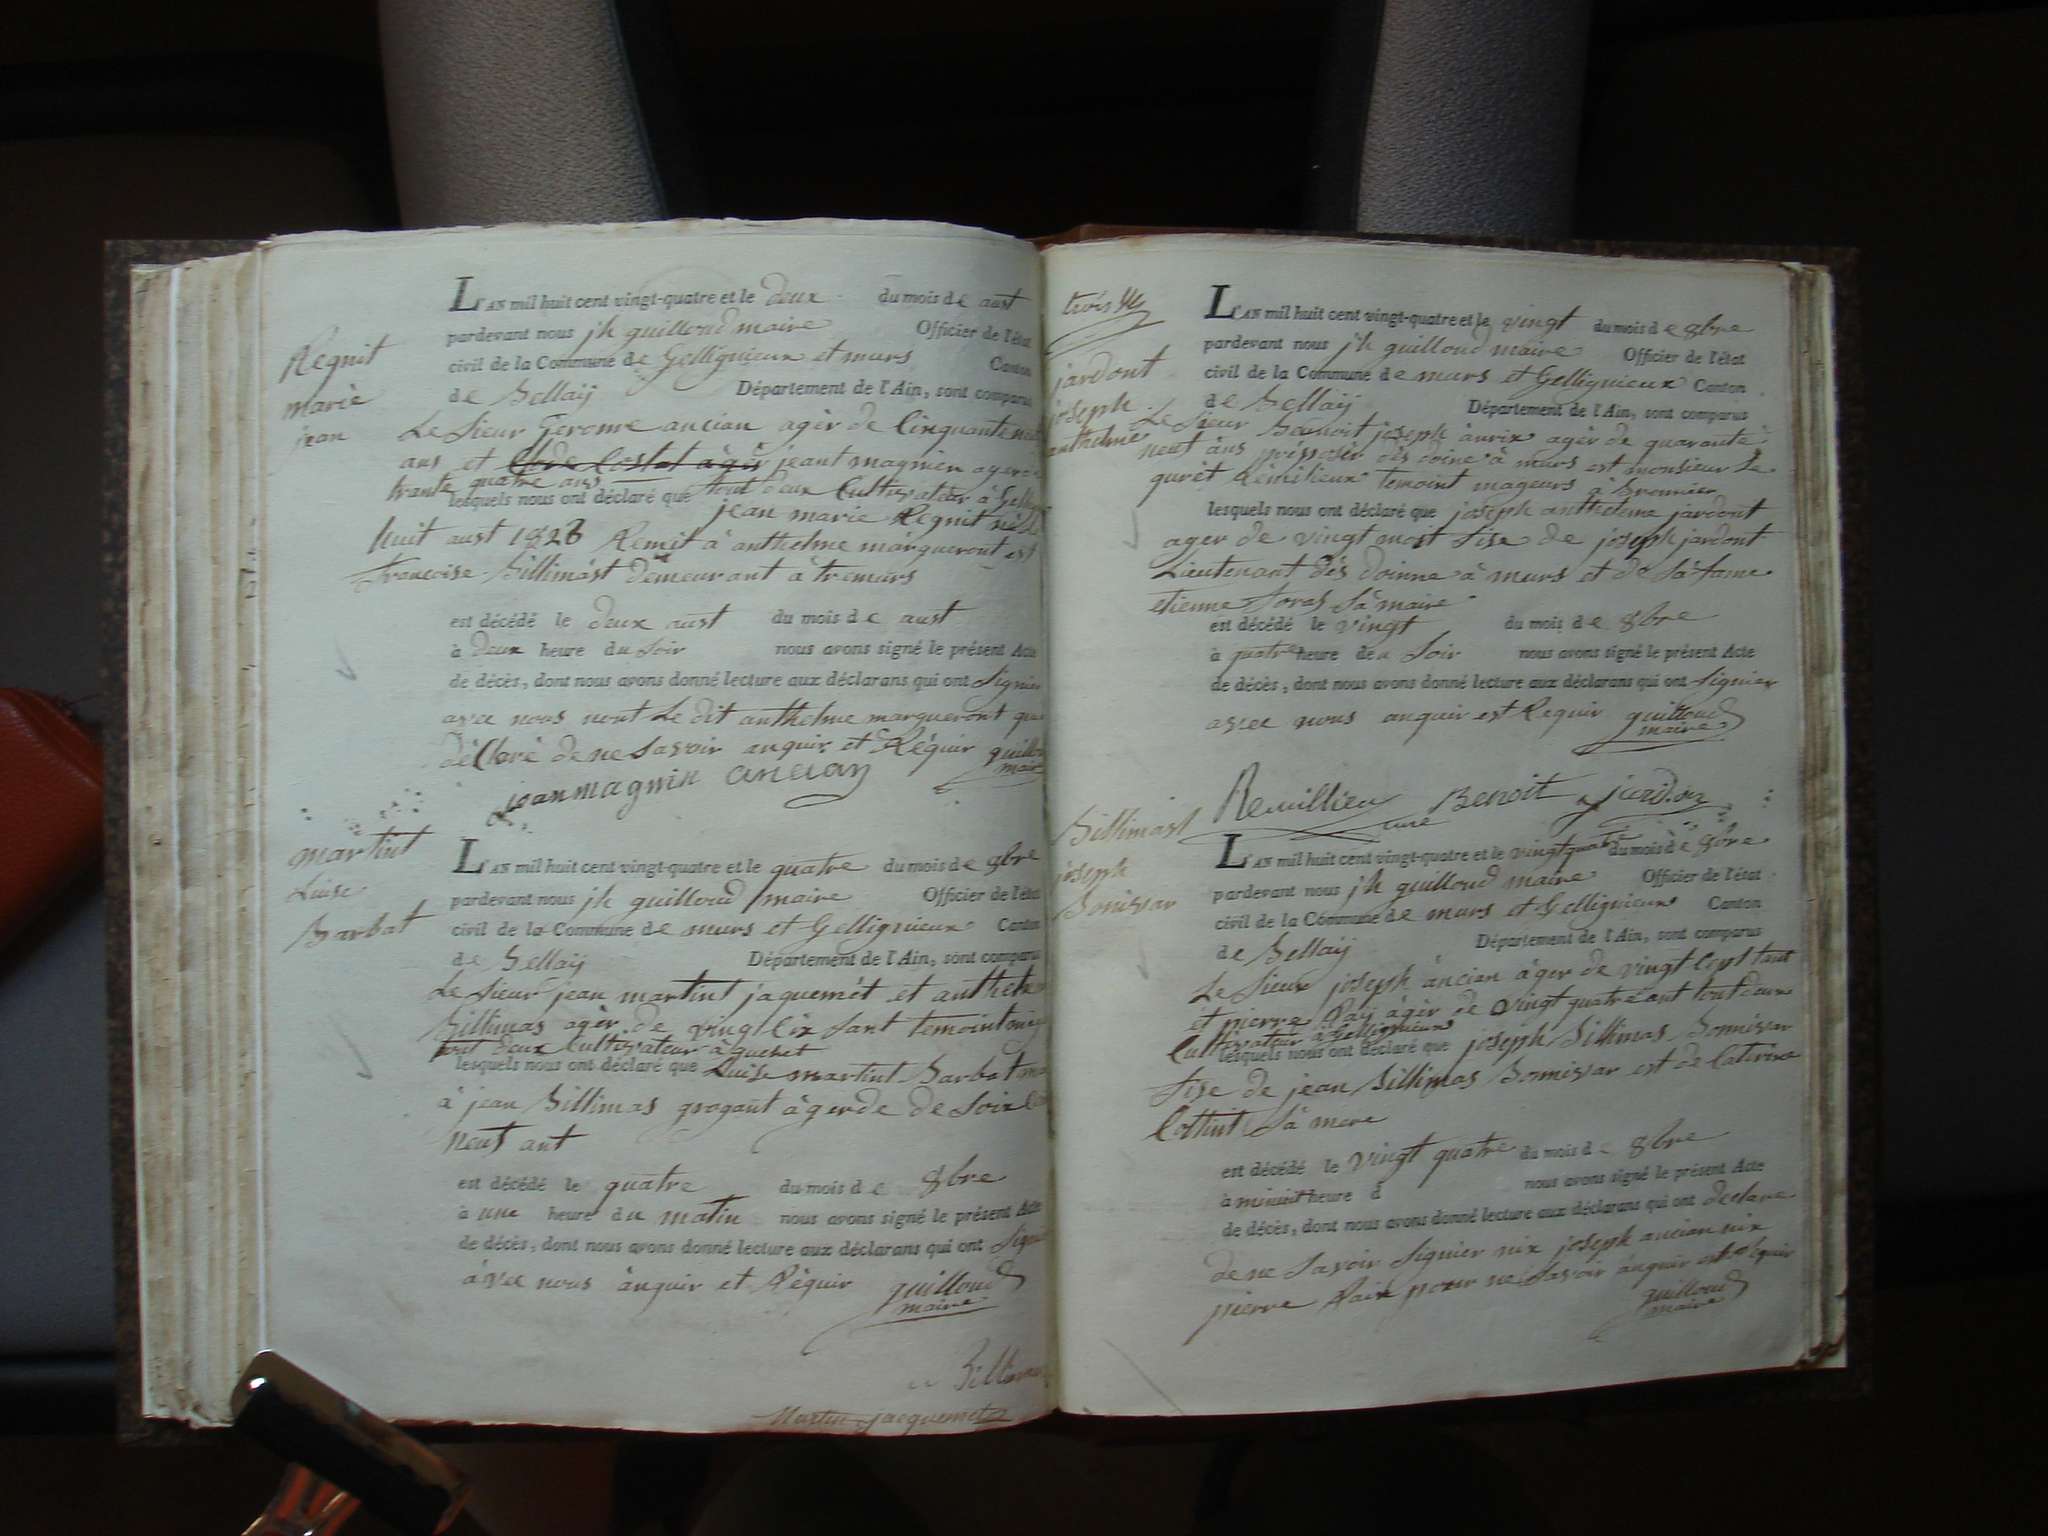 Regnit
marie
jean
L'AN mil huit cent vingt-quatre et le deux du mois de aust
pardevant nous jh guilloud maire Officier de l'état
civil de la Commune de Gellignieux et murs Canton
de Bellaij Département de l'Ain, sont comparus
Le Sieur Gerome ancian agèr de Cinquante
ans et jeant magnien ager
trante quatre ans
lesquels nous ont déclaré que tout deux Cultivateur à
jean marie Regnit
huit aust 1823 Remit à anthelme margueront est
francoise Billimast demeurant à tremurs
est décédé le deux aust du mois de aust
à deux heure du Soir nous avons signé le présent Acte
de décès, dont nous avons donné lecture aux déclarans qui ont Signier
avec nous nont Le dit anthelme margueront
déClarè de ne Savoir anquir et Réquir guilloud
maire
jean magnin ancian
martint
Luise
Barbat
L'AN mil huit cent vingt-quatre et le quatre du mois de 8bre
pardevant nous jh guilloud maire Officier de l'état
civil de la Commune de murs et Gellignieux Canton
de Bellaij Département de l'Ain, sont comparus
Le Sieur jean martint jaquemét et
Billimas agèr de vingt Cix Sant temoint
tout deux Cultivateur à
lesquels nous ont déclaré que Luise martint Barbat
à jean Billimas grogant àger de de Soix
neuf ant
est décédé le quatre du mois de 8bre
à une heure du matin nous avons signé le présent Acte
de décès, dont nous avons donné lecture aux déclarans qui ont
àvec nous ànquir et Réquir guilloud
maire
Martin jacquemet
trois
jardont
joseph
anthelme
L'AN mil huit cent vingt-quatre et le vingt du mois de 8bre
pardevant nous jh guilloud maire Officier de l'état
civil de la Commune de murs et Gellignieux Canton
de Bellaij Département de l'Ain, sont comparus
Le Sieur Benoit joseph ager de quarante
neuf àns à murs est monsieur Le
temoint mageurs à
lesquels nous ont déclaré que joseph anthelme jardont
ager de vingt most fise de joseph jardont
Lieutenant dès doinne à murs et de Sà fame
etienne Sà maire
est décédé le vingt du mois de 8bre
à quatre heure deu Soir nous avons signé le présent Acte
de décès, dont nous avons donné lecture aux déclarans qui ont Signier
avec nous anquir est Requir guilloud
maire
Benoit
Billimast
joseph
Bonivar
L'AN mil huit cent vingt-quatre et le vingt quatre du mois de 8bre
pardevant nous jh guilloud maire Officier de l'état
civil de la Commune de murs et Gellignieux Canton
de Bellaij Département de l'Ain, sont comparus
Le Sieur joseph àncian àger de vingt Cept tant
et pierre àgèr de vingt quatre ant tout deux
Cultivateur à Gellignieux
lesquels nous ont déclaré que joseph Billimas Bonnivar
fise de jean Billimas Bonnivar est de Caterine
Cottint Sà mere
est décédé le vingt quatre du mois de 8bre
à minuit heure d nous avons signé le présent Acte
de décès, dont nous avons donné lecture aux déclarans qui ont declare
de ne Savoir Signier nix joseph ancian nix
pierre pour ne Savoir ànquir
guilloud
maire